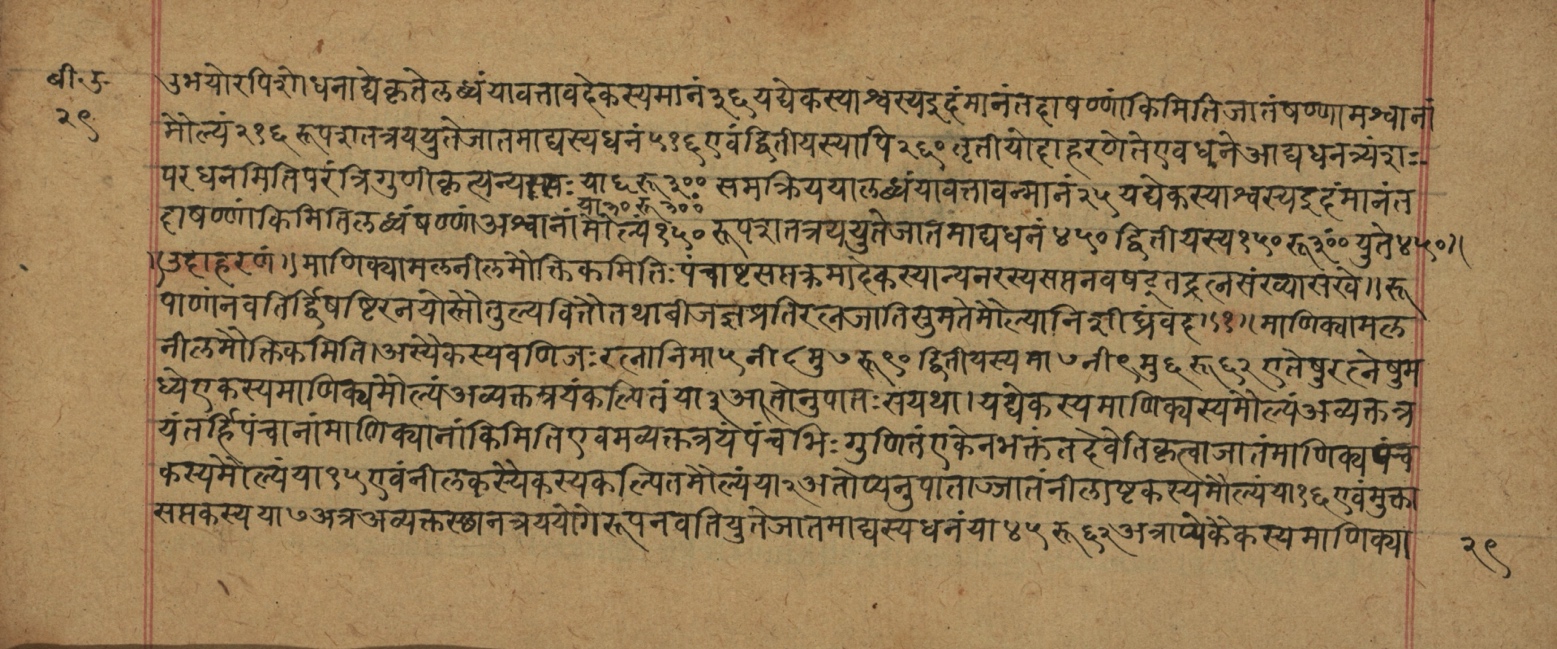 बी. उ.
२९
उभयोरपिशोधनाद्येकृतेलब्धंयावत्तावदेकस्यमानं३६यद्येकस्याश्वस्यइदंमानंतदाषण्णांकिमितिजातंषण्णामश्वानां
मौल्यं२१६रूपशतत्रययुतेजातमाद्यस्यधनं५१६एवंद्वितीयस्यापि२६०तृतीयोदाहरणेतेएवधनेआद्यधनत्र्यंशः
परधनमितिपरंत्रिगुणीकृत्यन्यासः या६रू३०० समक्रिययालब्धंयावत्तावन्मानं२५यद्येकस्याश्वस्यइदंमानंत
या३०रू३००
दाषण्णांकिमितिलब्धंषण्णांअश्वानांमौल्यं१५०रूपशतत्रययुतेजातमाद्यधनं४५०द्वितीयस्य१५०रू३०० युते४५०॥
॥उदाहरणं॥माणिक्यामलनीलमौक्तिकमितिःपंचाष्टसप्तक्रमादेकस्यान्यनरस्यसप्तनवषट्तद्रत्नसंख्यासखे॥रू
पाणांनवतिर्द्विषष्टिरनयोस्तौतुल्यवित्तौतथाबीजज्ञप्रतिरत्नजातिसुमतेमौल्यानिशीघ्रंवद॥१॥माणिक्यामल
नीलमौक्तिकमिति।अस्यैकस्यवणिजःरत्नानिमा५नी८मु७रू९०द्वितीयस्यमा७नी९मु६रू६२एतेषुरत्नेषुम
ध्येएकस्यमाणिक्यमौल्यंअव्यक्तत्रयंकल्पितंया३अतोनुपातःसयथा।यद्येकस्यमाणिक्यस्यमौल्यंअव्यक्तत्र
यंतर्हिपंचानांमाणिक्यानांकिमितिएवमव्यक्तत्रयंपंचभिःगुणितंएकेनभक्तंतदेवेतिकृत्वाजातंमाणिक्यपंच
कस्यमौल्यंया१५एवंनीलकस्यैकस्यकल्पितमौल्यंया२अतोप्यनुपाताज्जातंनीलाष्टकस्यमौल्यंया१६एवंमुक्ता
सप्तकस्यया७अत्रअव्यक्तस्थानत्रययोगेरूपनवतियुतेजातमाद्यस्यधनंया४५रू६२अत्राप्येकैकस्यमाणिक्या
२९